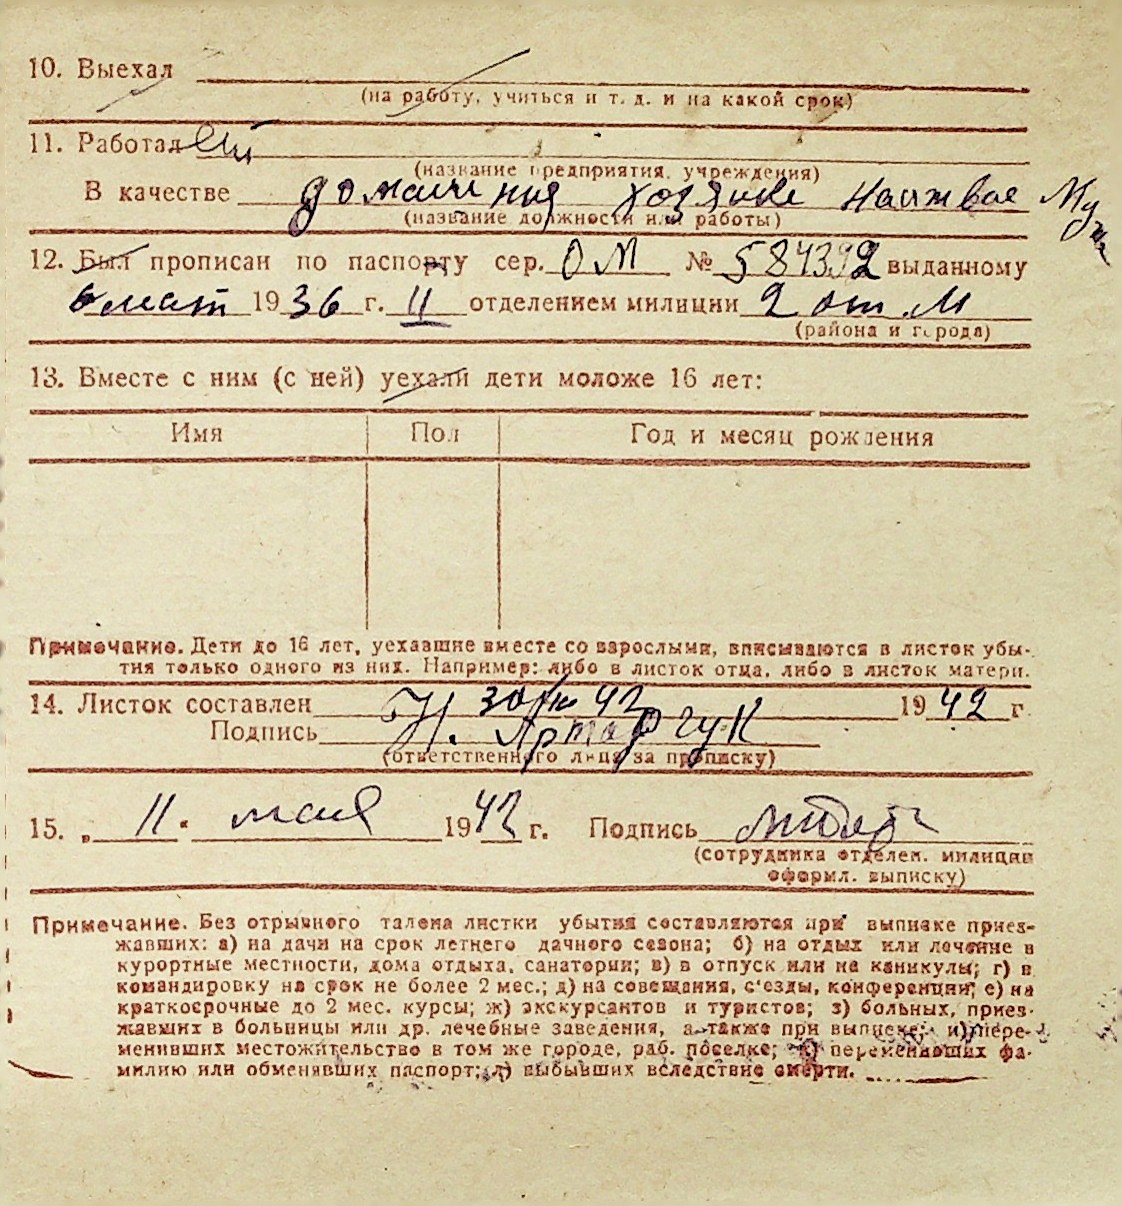 10. Выехал
(на работу, учиться и т. д. и на какой срок)
11. Работал
(название предприятия, учреждения)
В качестве домашняя хозяйка
(название должности или работы)
12. Был прописан по паспорту сер. ОМ № 584392 выданному
1936 г. II отделением милиции 2 от. М
(района и города)
13. Вместе с ним (с ней) уехали дети моложе 16 лет:
Имя Пол Год и месяц рождения
Примечание. Дети до 16 лет, уехавшие вместе со взрослыми, вписываются в листок убы-
тия только одного из них. Например: либо в листок отца, либо в листок матери.
14. Листок составлен 1942 г.
Подпись Н.
(ответственного лица за прописку)
15. „ 11 " мая 1942 г. Подпись
(сотрудника отделен. милиции
оформл. выписку)
Примечание. Без отрывного талона листки убытия составляются при выписке приез-
жавших: а) на дачи на срок летнего дачного сезона; б) на отдых или лечение в
курортные местности, дома отдыха, санатории; в) в отпуск или на каникулы; г) в
командировку на срок не более 2 мес.; д) на совещания, с'езды, конференции; е) на
краткосрочные до 2 мес. курсы; ж) экскурсантов и туристов; з) больных, приез-
жавших в больницы или др. лечебные заведения, а также при выписке: и) пере-
менивших местожительство в том же городе, раб. поселке; к) переменивших фа-
милию или обменявших паспорт; л) выбывших вследствие смерти.